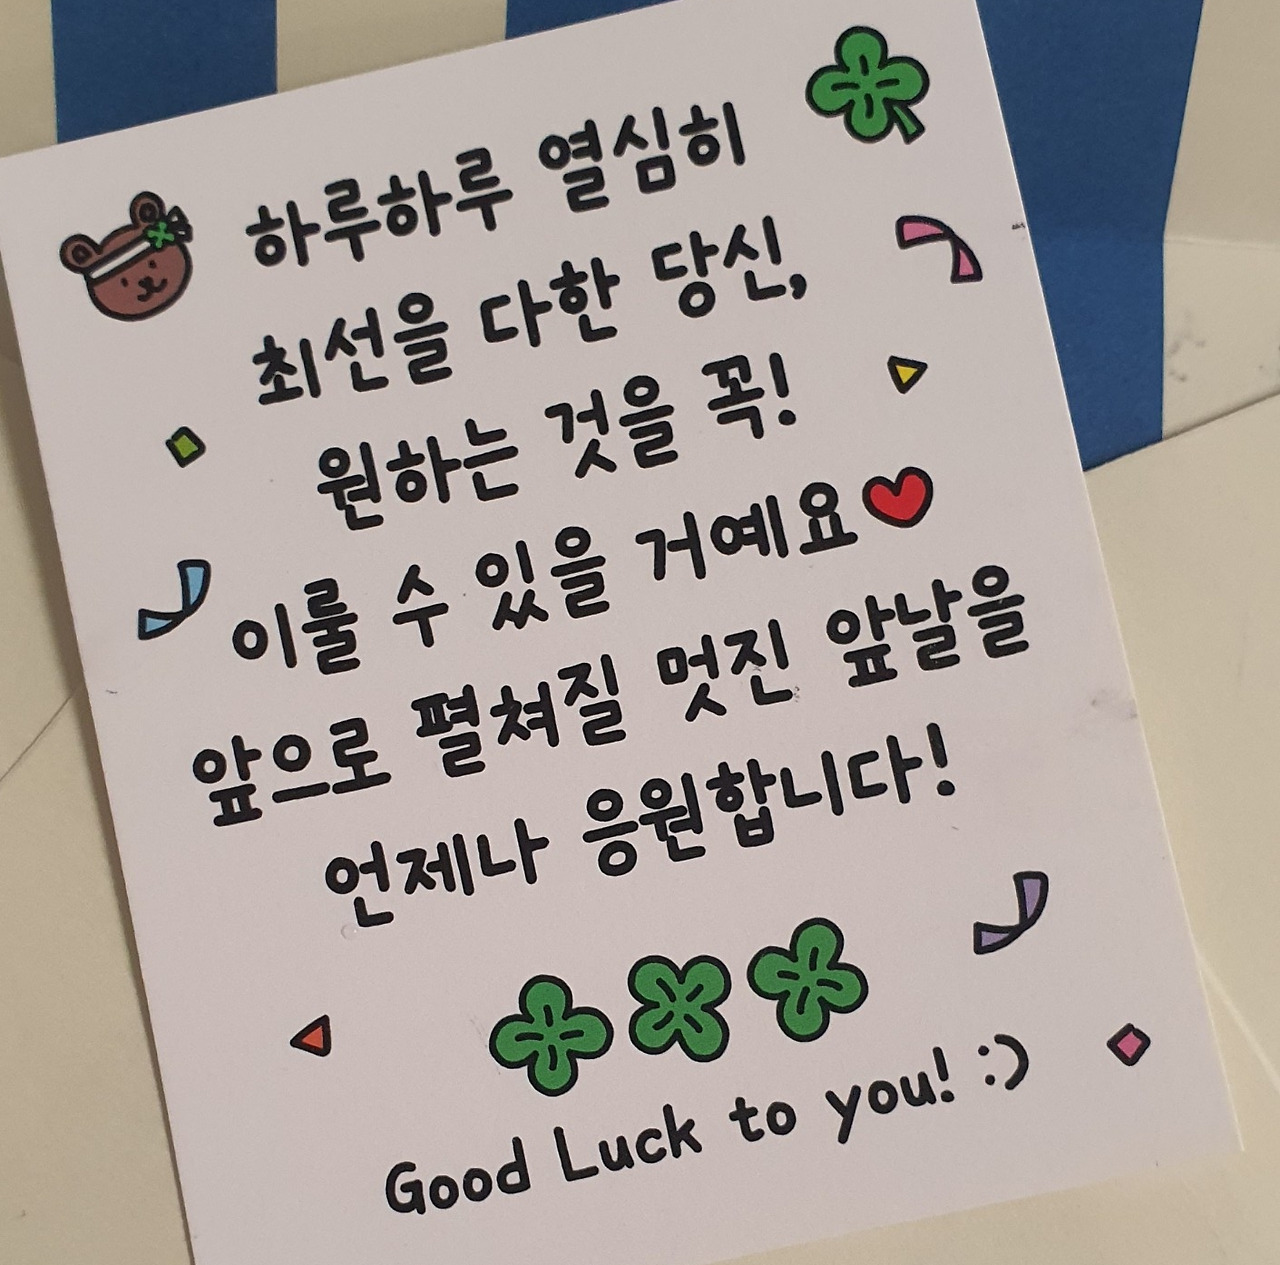 하루하루 열심히
최선을 다한 당신,
원하는 것을 꼭!
이룰 수 있을 거예요❤
앞으로 펼쳐질 멋진 앞날을
언제나 응원합니다!
Good Luck to you! :)